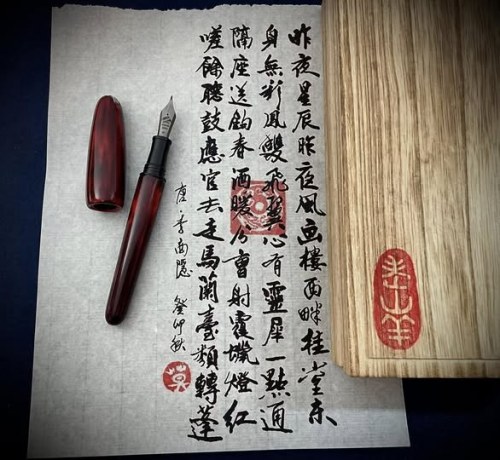 昨夜星辰昨夜風画樓西畔桂堂东
身無彩鳳雙飛翼心有靈犀一點通
隔座送鈎春酒暖分曹射覆蠟燈红
嗟餘聽鼓應官去走馬蘭臺類轉蓬
唐·李商隱 癸卯秋